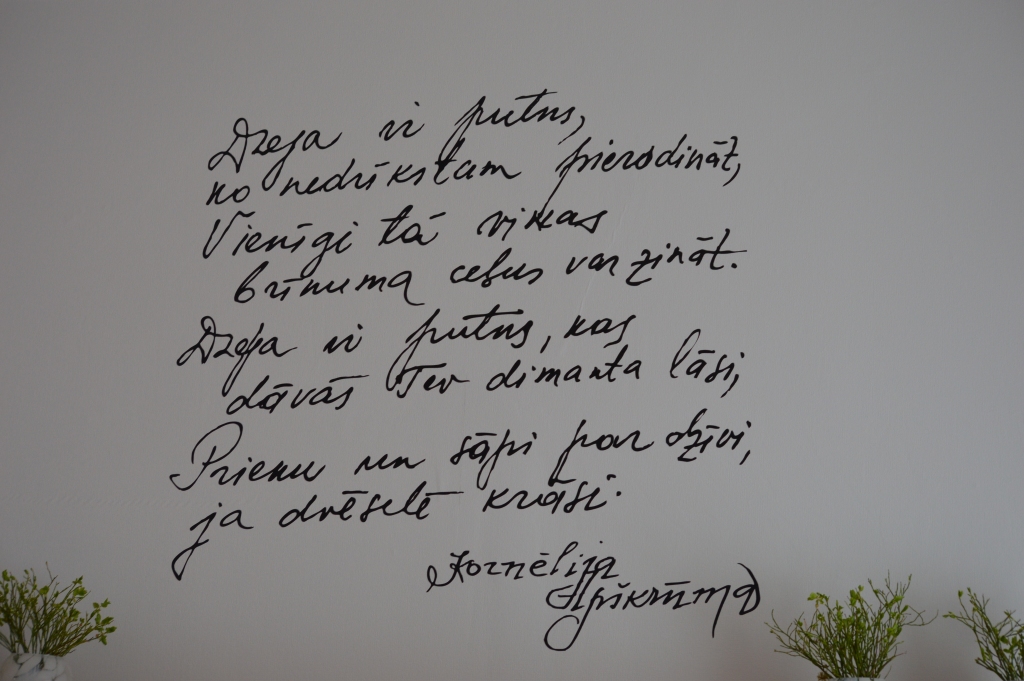 Dzeja ir putns,
ko nedrīkstam pieradināt,
Vienīgi tā viņas
brīnuma ceļus var zināt.
Dzeja ir putns, kas
dāvās Tev dimanta lāsi,
Prieku un sāpi par dzīvi,
ja dvēselē krāsi.
Kornēlija
Apškrūma